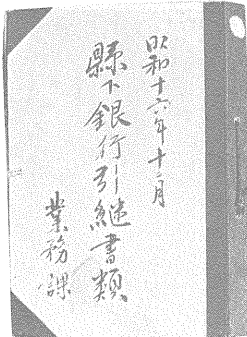 昭和十六年十二月
縣下銀行引継書類
業務課